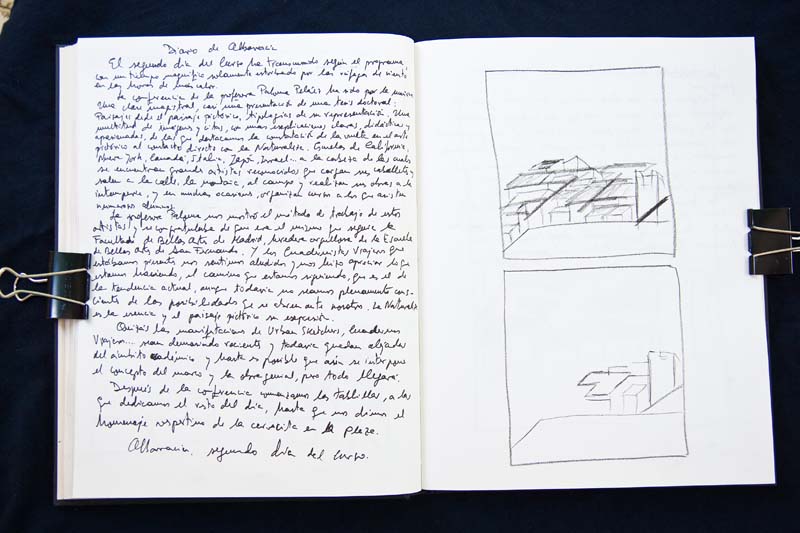 Diario de Albarracín
El segundo día del Curso ha transcurrido según el programa,
con un tiempo magnífico solamente estorbado por las ráfagas de viento
en las horas de más calor.
La conferencia de la profesora Paloma Peláez ha sido por la mañana
Una clase magistral, casi una presentación de una tesis doctoral:
Paisajes desde el paisaje pictórico, tipologías de su representación. Una
multitud de imágenes y citas, con unas explicaciones claras, didácticas y
apasionadas, de las que destacamos la constatación de la vuelta en el arte
pictórico al contacto directo con la Naturaleza. Escuelas de California,
Nueva York, Canadá, Italia, Japón, Israel... a la cabeza de las cuales
se encuentran grandes artistas reconocidos que cargan su caballete y
salen a la calle, la montaña, al campo y realizan sus obras a la
intemperie, y en muchas ocasiones, organizan cursos a los que asisten
numerosos alumnos.
La profesora Paloma nos mostró el método de trabajo de estos
artistas y se congratulaba de que era el mismo que seguía la
Facultad de Bellas Artes de Madrid, heredera orgullosa de la Escuela
de Bellas Artes de San Fernando. Y los Cuadernistas Viajeros que
estábamos presentes nos sentimos aludidos y nos hizo apreciar lo que
estamos haciendo, el camino que estamos siguiendo, que es el de
la tendencia actual, aunque todavía no seamos plenamente cons-
cientes de las posibilidades que se abren ante nosotros. La Naturaleza
es la esencia y el paisaje pictórico su expresión.
Quizás las manifestaciones de Urban Sketchers, Cuadernos
Viajeros... sean demasiado recientes y todavía quedan alejadas
del ámbito académico y hasta es posible que aún se interpone
el concepto del marco y la obra genial, pero todo llegará.
Después de la conferencia comenzamos las tablillas, a las
que dedicamos el resto del día, hasta que nos dimos el
homenaje vespertino de la cervecita en la plaza.
Albarracín, segundo día del curso.